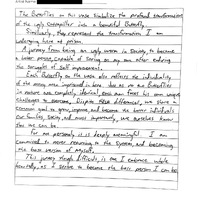 The Butterflies on this vase symbolize the profound transformation
of the ugly caterpillar into a beautiful Butterfly.
Similarly, they represent the transformation I am
undergoing here at prison.
A journey from being an ugly worm in society, to become
a better person, capable of soaring on my own after enduring
the struggle of self improvement.
Each Butterfly on the vase also reflects the individuality
of the many men imprisoned in here. Just as no two Butterflies
in nature are completely identical, each man faces his own unique
challenges to overcome. Despite these differences, we share a
common goal to grow, improve, and become the better individuals
our families, society, and most importantly, we ourselves know
that we can be.
For me personally, it is deeply meaningful. I am
committed to never returning to the system and becoming
the best version of myself.
This journey though difficult, is one I embrace whole
heartedly, as I strive to become the best person I can be.